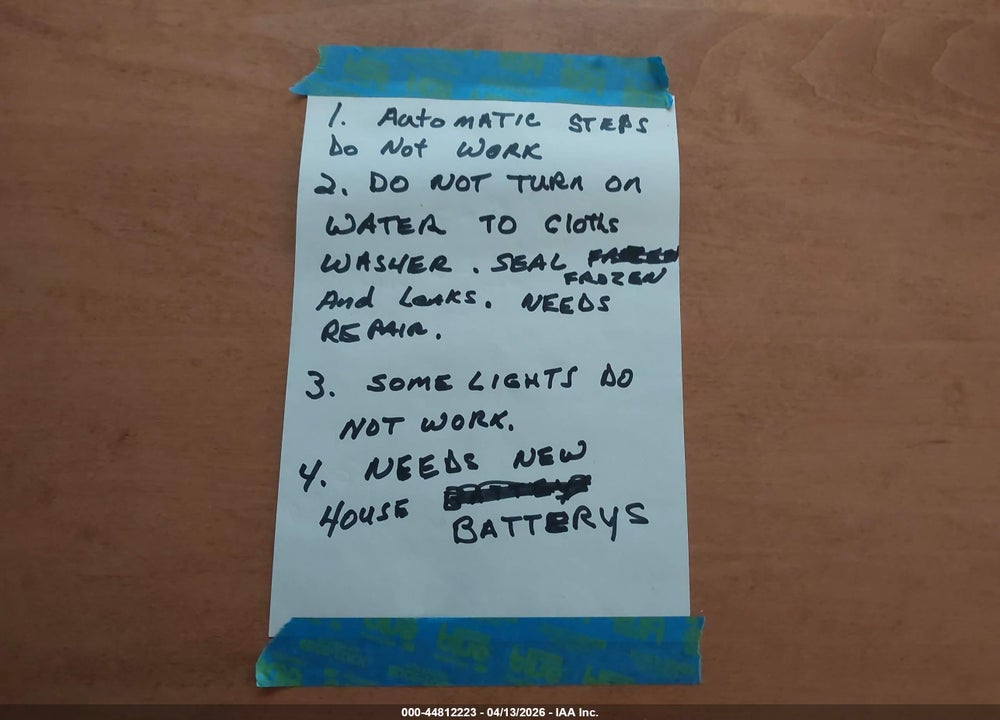 1. Automatic STEPS
Do Not WORK
2. DO NOT TURN ON
WATER TO Cloths
WASHER. SEAL
FROZEN
And Leaks. NEEDS
REPAIR.
3. SOME LIGHTS DO
NOT WORK.
4. NEEDS NEW
HOUSE
BATTERYS
000-44812223 - 04/13/2026 - IAA Inc.